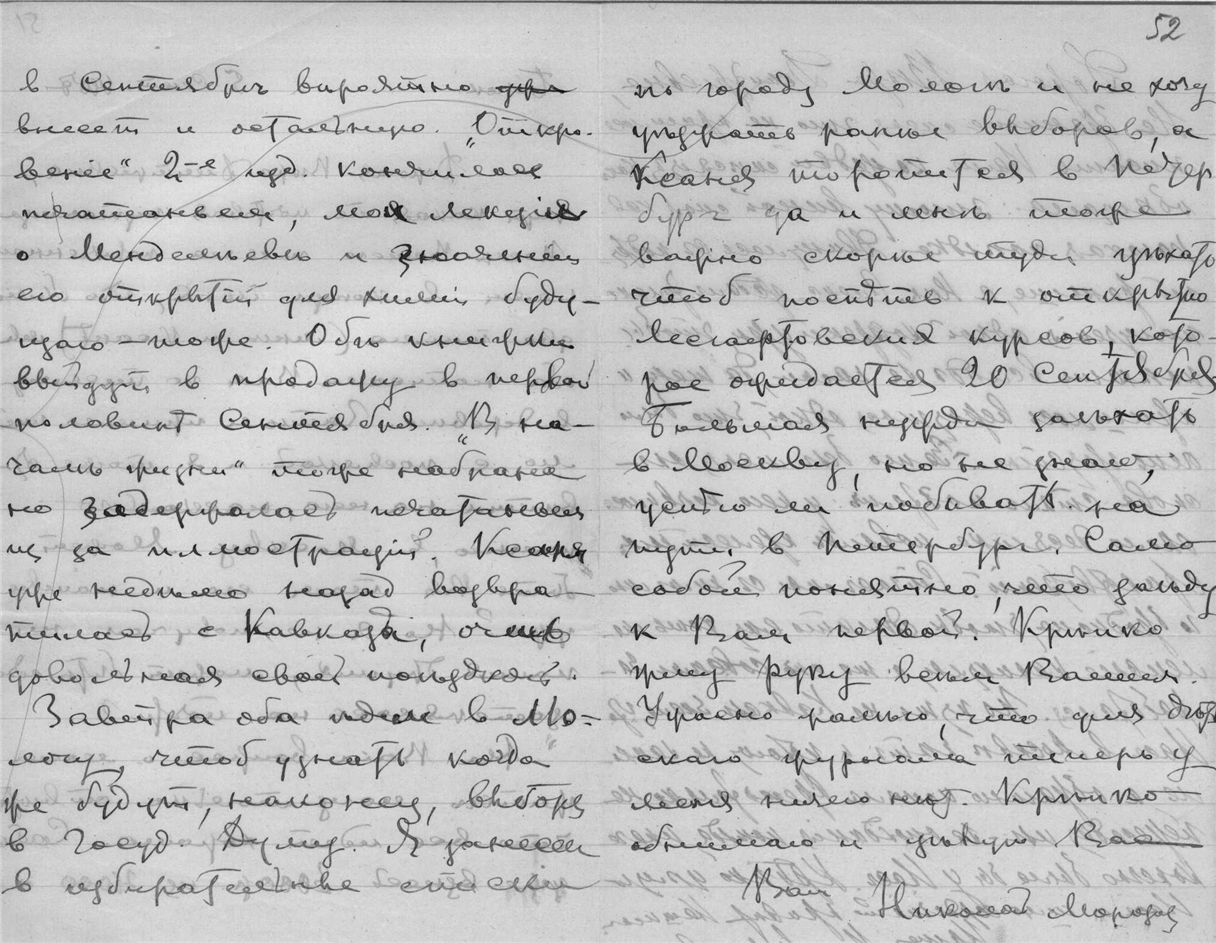 в Сентябрѣ вѣроятно
внесет и остальную. "Откро-
веніе" 2-е изд. кончилось
печатаньем, моя лекція
о Менделѣевѣ и значеніи
его открытій для химіи буду-
щаго – тоже. Обѣ книжки
выйдут в продажу в первой
половинѣ Сентября. "В на-
чалѣ жизни" тоже набрана
но задержалась печатаньем
из за иллюстрацій. Ксаня
уже недѣлю назад возвра-
тилась с Кавказа, очень
довольная своей поѣздкой.
Завтра оба идем в Мо-
логу, чтоб узнать когда
же будут, наконец, выборы
в Госуд. Думу. Я занесен
в избирательные списки
52
по городу Мологѣ и не хочу
уѣзжать раньше выборов, а
Ксаня торопится в Петер
бург да и мнѣ тоже
важно скорѣе туда уѣхать
чтоб поспѣть к открытію
Лесгафтовских курсов, кото-
рое ожидается 20 Сентября
Большая нужда заѣхать
в Москву, но не знаю,
успѣю ли побывать на
пути в Петербург. Само
собой понятно, что заѣду
к Вам первой. Крѣпко
жму руку всѣм Вашим.
Ужасно жалко, что для дѣт
скаго журнала теперь у
меня ничего нѣт. Крѣпко
обнимаю и цѣлую Вас
Ваш Николай Морозов